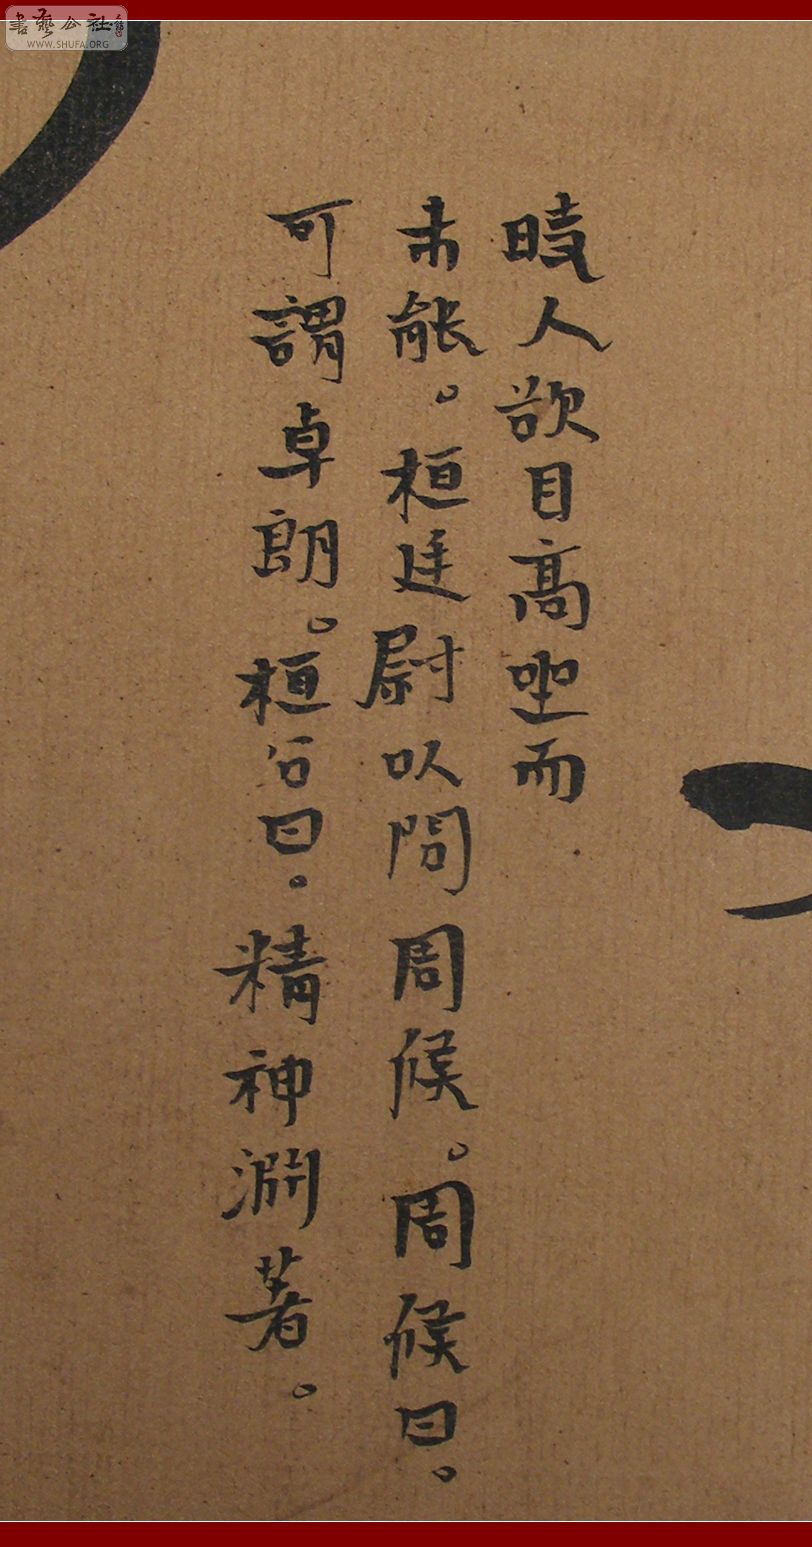 時人欲目高坐而
未能。桓廷尉以問周候。周候曰。
可謂卓朗。桓公曰。精神淵著。
書藝公社
WWW.SHUFA.ORG